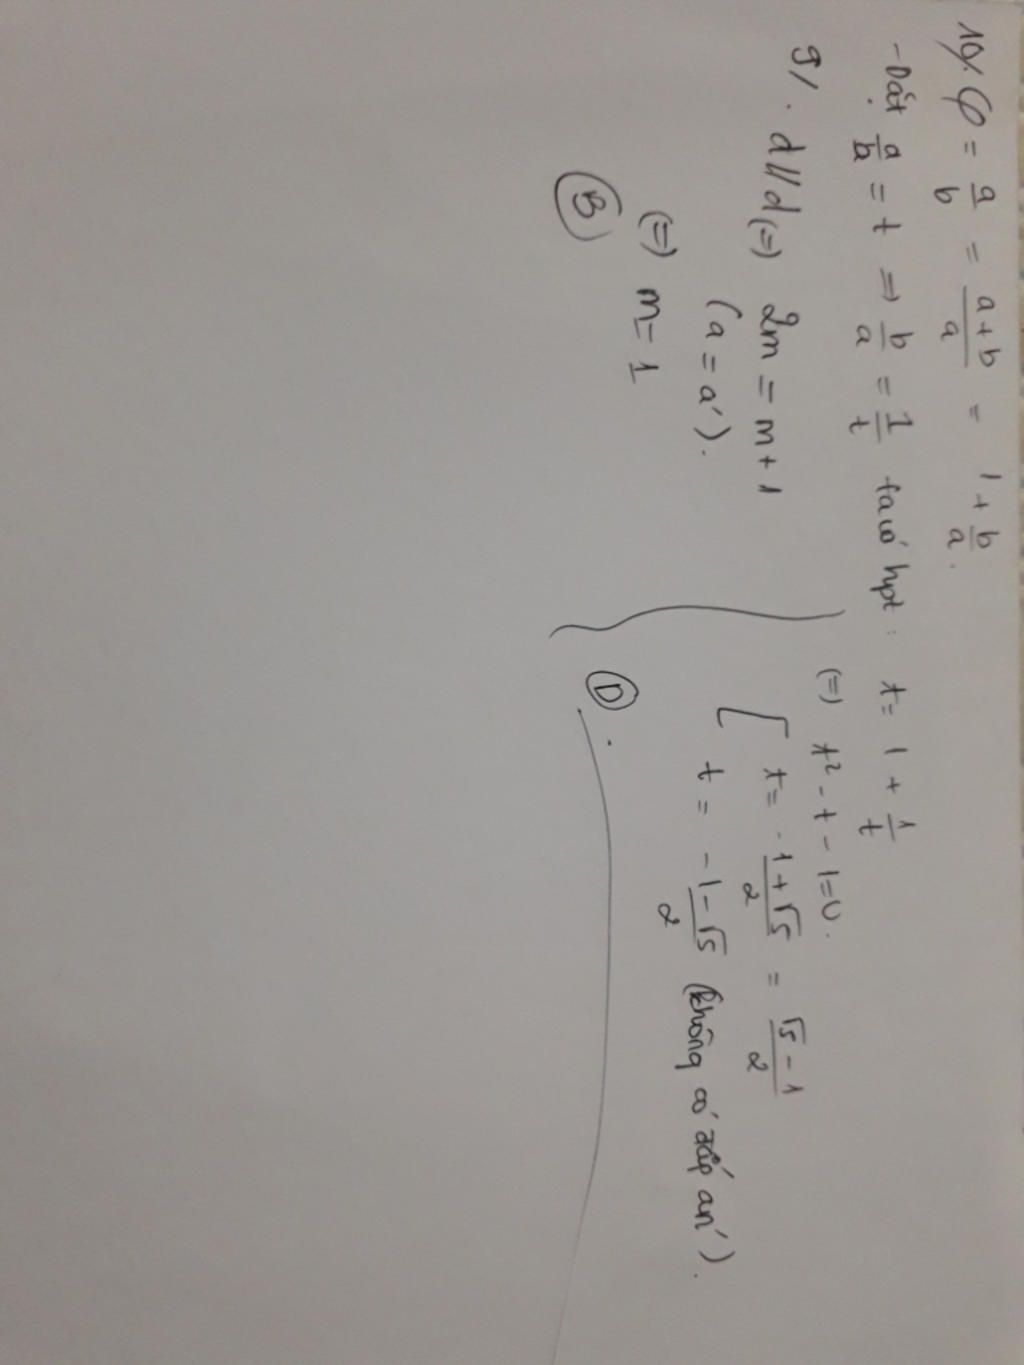 10/. φ = a/b = (a+b)/a = 1 + b/a.
- Đặt a/b = t => b/a = 1/t ta có hpt : t = 1 + 1/t
(=) t² - t - 1 = 0.
[ t = -1+√5/2 = √5-1/2
t = -1-√5/2 (không có đáp án).
D.
9/. d//d (=) 2m = m+1
(a = a').
(=) m = 1
B